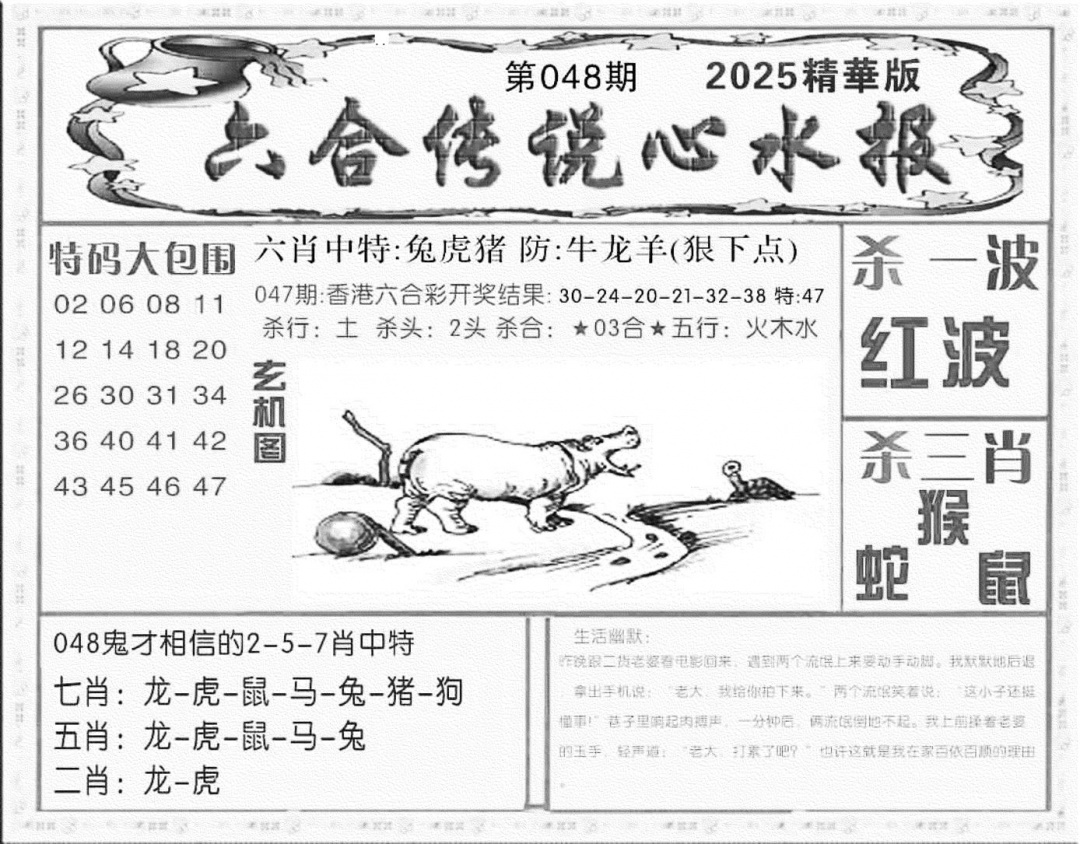 第048期 2025精華版
六合传说心水报
特码大包围
02 06 08 11
12 14 18 20
26 30 31 34
36 40 41 42
43 45 46 47
六肖中特:兔虎猪 防:牛龙羊(狠下点)
047期:香港六合彩开奖结果: 30-24-20-21-32-38 特:47
杀行：土 杀头：2头 杀合：★03合★五行：火木水
玄机图
杀一波
红波
杀三肖
猴
蛇 鼠
048鬼才相信的2-5-7肖中特
七肖：龙-虎-鼠-马-兔-猪-狗
五肖：龙-虎-鼠-马-兔
二肖：龙-虎
生活幽默：
昨晚跟二货老婆看电影回来，遇到两个流氓上来要动手动脚。我默默地后退
，拿出手机说：“老大，我给你拍下来。”两个流氓笑着说：“这小子还挺
懂事!”巷子里响起肉搏声，一分钟后，俩流氓倒地不起。我上前揉着老婆
的玉手，轻声道：“老大，打累了吧？”也许这就是我在家百依百顺的理由
。